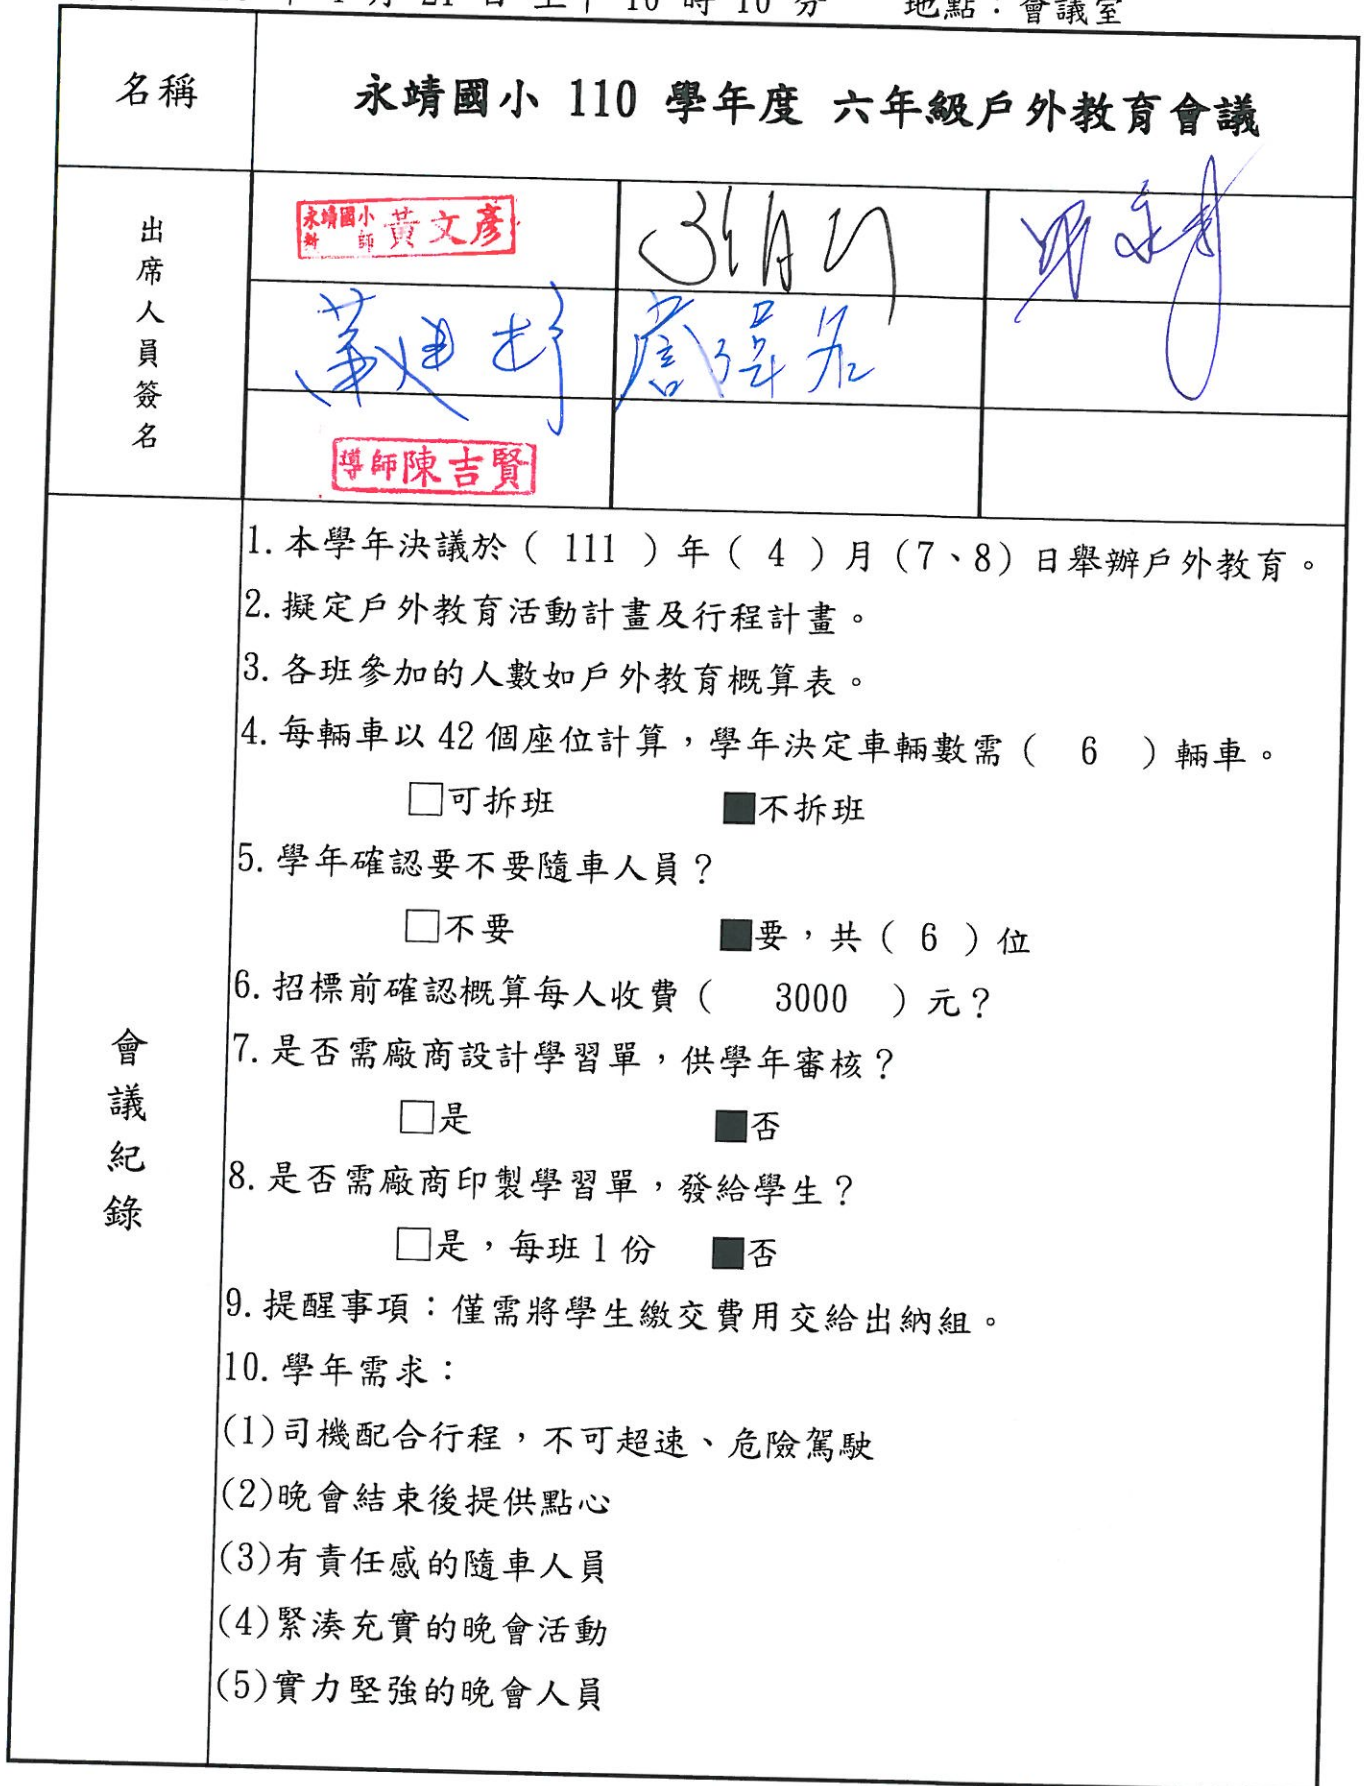 月 21 日 上午 10 時 10 分 地點：會議室
名稱
永靖國小 110 學年度 六年級戶外教育會議
出席人員簽名
永靖國小 師 黃文彥
導師陳吉賢
會議紀錄
1.本學年決議於（ 111 ）年（ 4 ）月（7、8）日舉辦戶外教育。
2.擬定戶外教育活動計畫及行程計畫。
3.各班參加的人數如戶外教育概算表。
4.每輛車以 42 個座位計算，學年決定車輛數需（ 6 ）輛車。
□可拆班 ■不拆班
5.學年確認要不要隨車人員？
□不要 ■要，共（ 6 ）位
6.招標前確認概算每人收費（ 3000 ）元？
7.是否需廠商設計學習單，供學年審核？
□是 ■否
8.是否需廠商印製學習單，發給學生？
□是，每班 1 份 ■否
9.提醒事項：僅需將學生繳交費用交給出納組。
10.學年需求：
(1)司機配合行程，不可超速、危險駕駛
(2)晚會結束後提供點心
(3)有責任感的隨車人員
(4)緊湊充實的晚會活動
(5)實力堅強的晚會人員